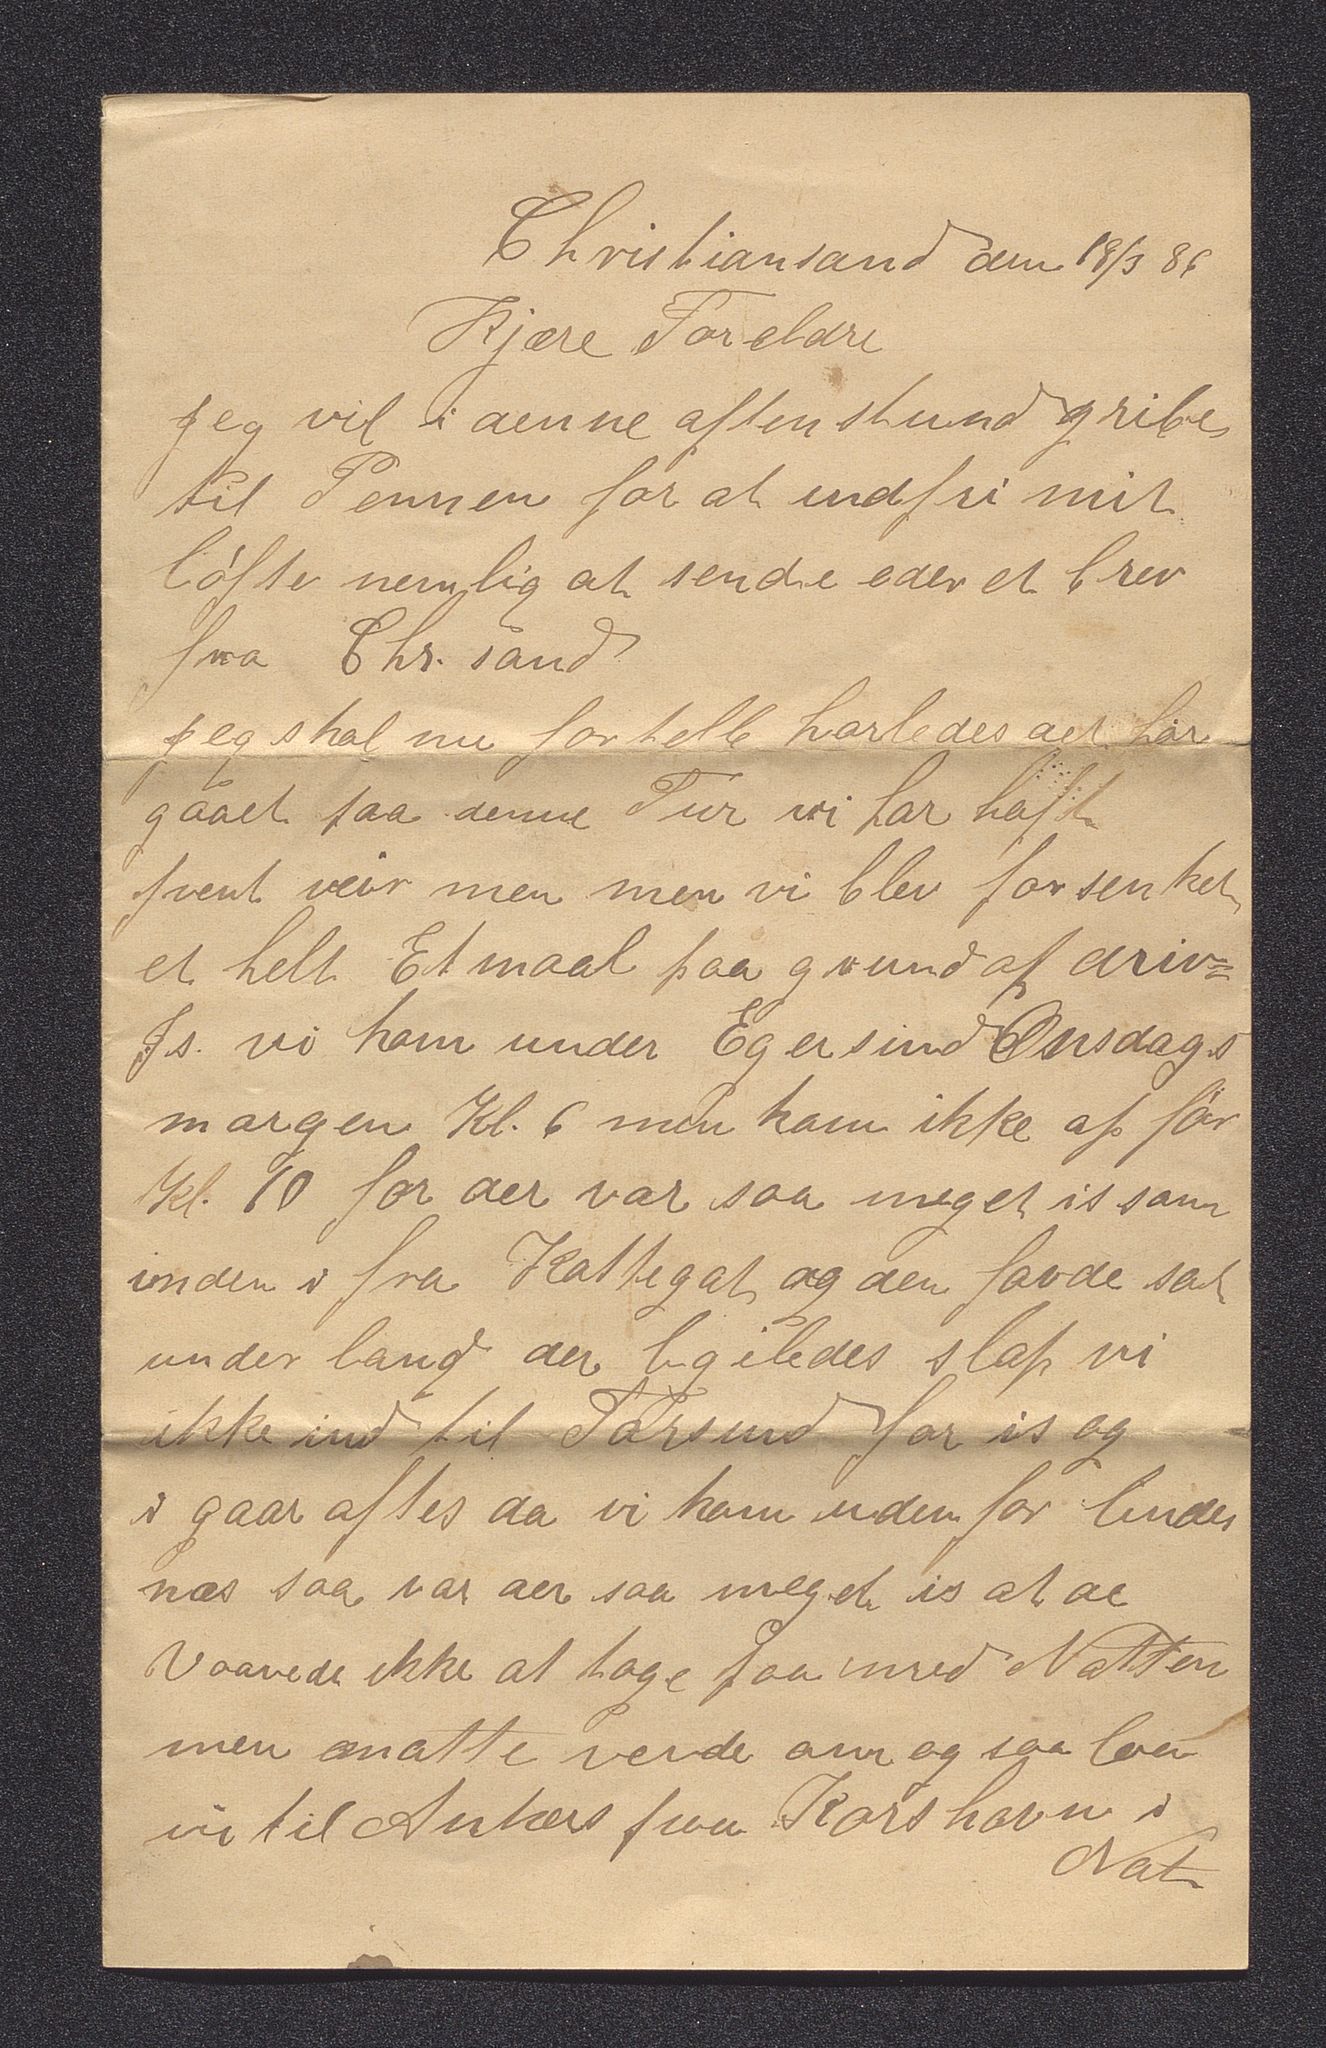 Christiansand den 18/3 86
Kjære Foreldre
jeg vil i denne aftenstund gribe
til Pennen for at indfri mit
løfte nemlig at sende eder et brev
fra Chr. sand
jeg skal nu fortelle horledes det har
gåaet paa denne Tur vi har haft
pent veir men men vi blev forsenket
et helt Etmaal paa grund af driv=
Is. vi kom under Egersund Onsdags
morgen Kl. 6 men kom ikke af før
Kl. 10 for der var saa meget is som
inden i fra Kattegat og den favde sat
under land der ligeledes slap vi
ikke ind til Farsund for is og
i gaar aftes da vi kom udenfor lindes
næs saa var der saa meget is at de
Vaavede ikke at tage paa med Natten
men maatte vende om og saa laa
vi til Ankers paa Korshavn i
Nat